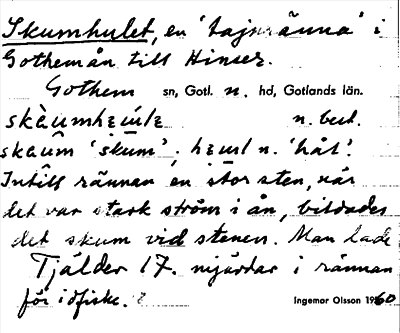 Skumhulet, en 'tajnränna' i
Gothemån till Hinser.
Gothem sn, Gotl. n. hd, Gotlands län.
skèumhɛulɛ n. best.
skæum 'skum'; hɛul n. 'hål'.
Intill rännan en stor sten, när
det var stark ström i ån, bildades
det skum vid stenen. Man lade
Tjälder 17. mjärdar i rännan
för idfiske.
Ingemar Olsson 1960